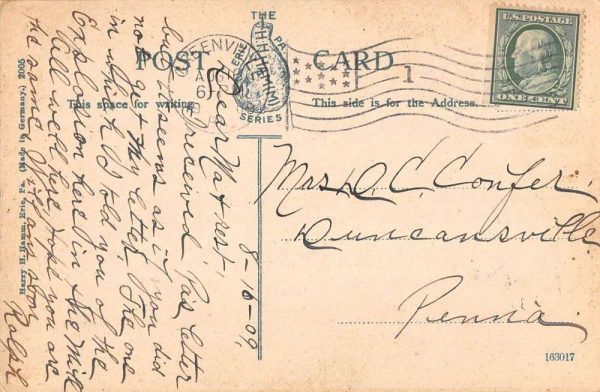 THE
POST CARD
ERIE PA.
H.H.H.
SERIES
GREENVILLE
1
U.S. POSTAGE
ONE CENT
This space for writing
This side is for the Address.
8-16-09,
Dear Ma & rest,
I received Pa's letter
but it seems as if you did
not get my letter. The one
in which I told you of the
Explosion here in the Mill
All well here, hope you are
the same. Write
soon
Ralph
Mrs. D. C. Confer.
Duncansville
Penna.
Harry H. Hamm, Erie, Pa. (Made in Germany.) 2005
163017